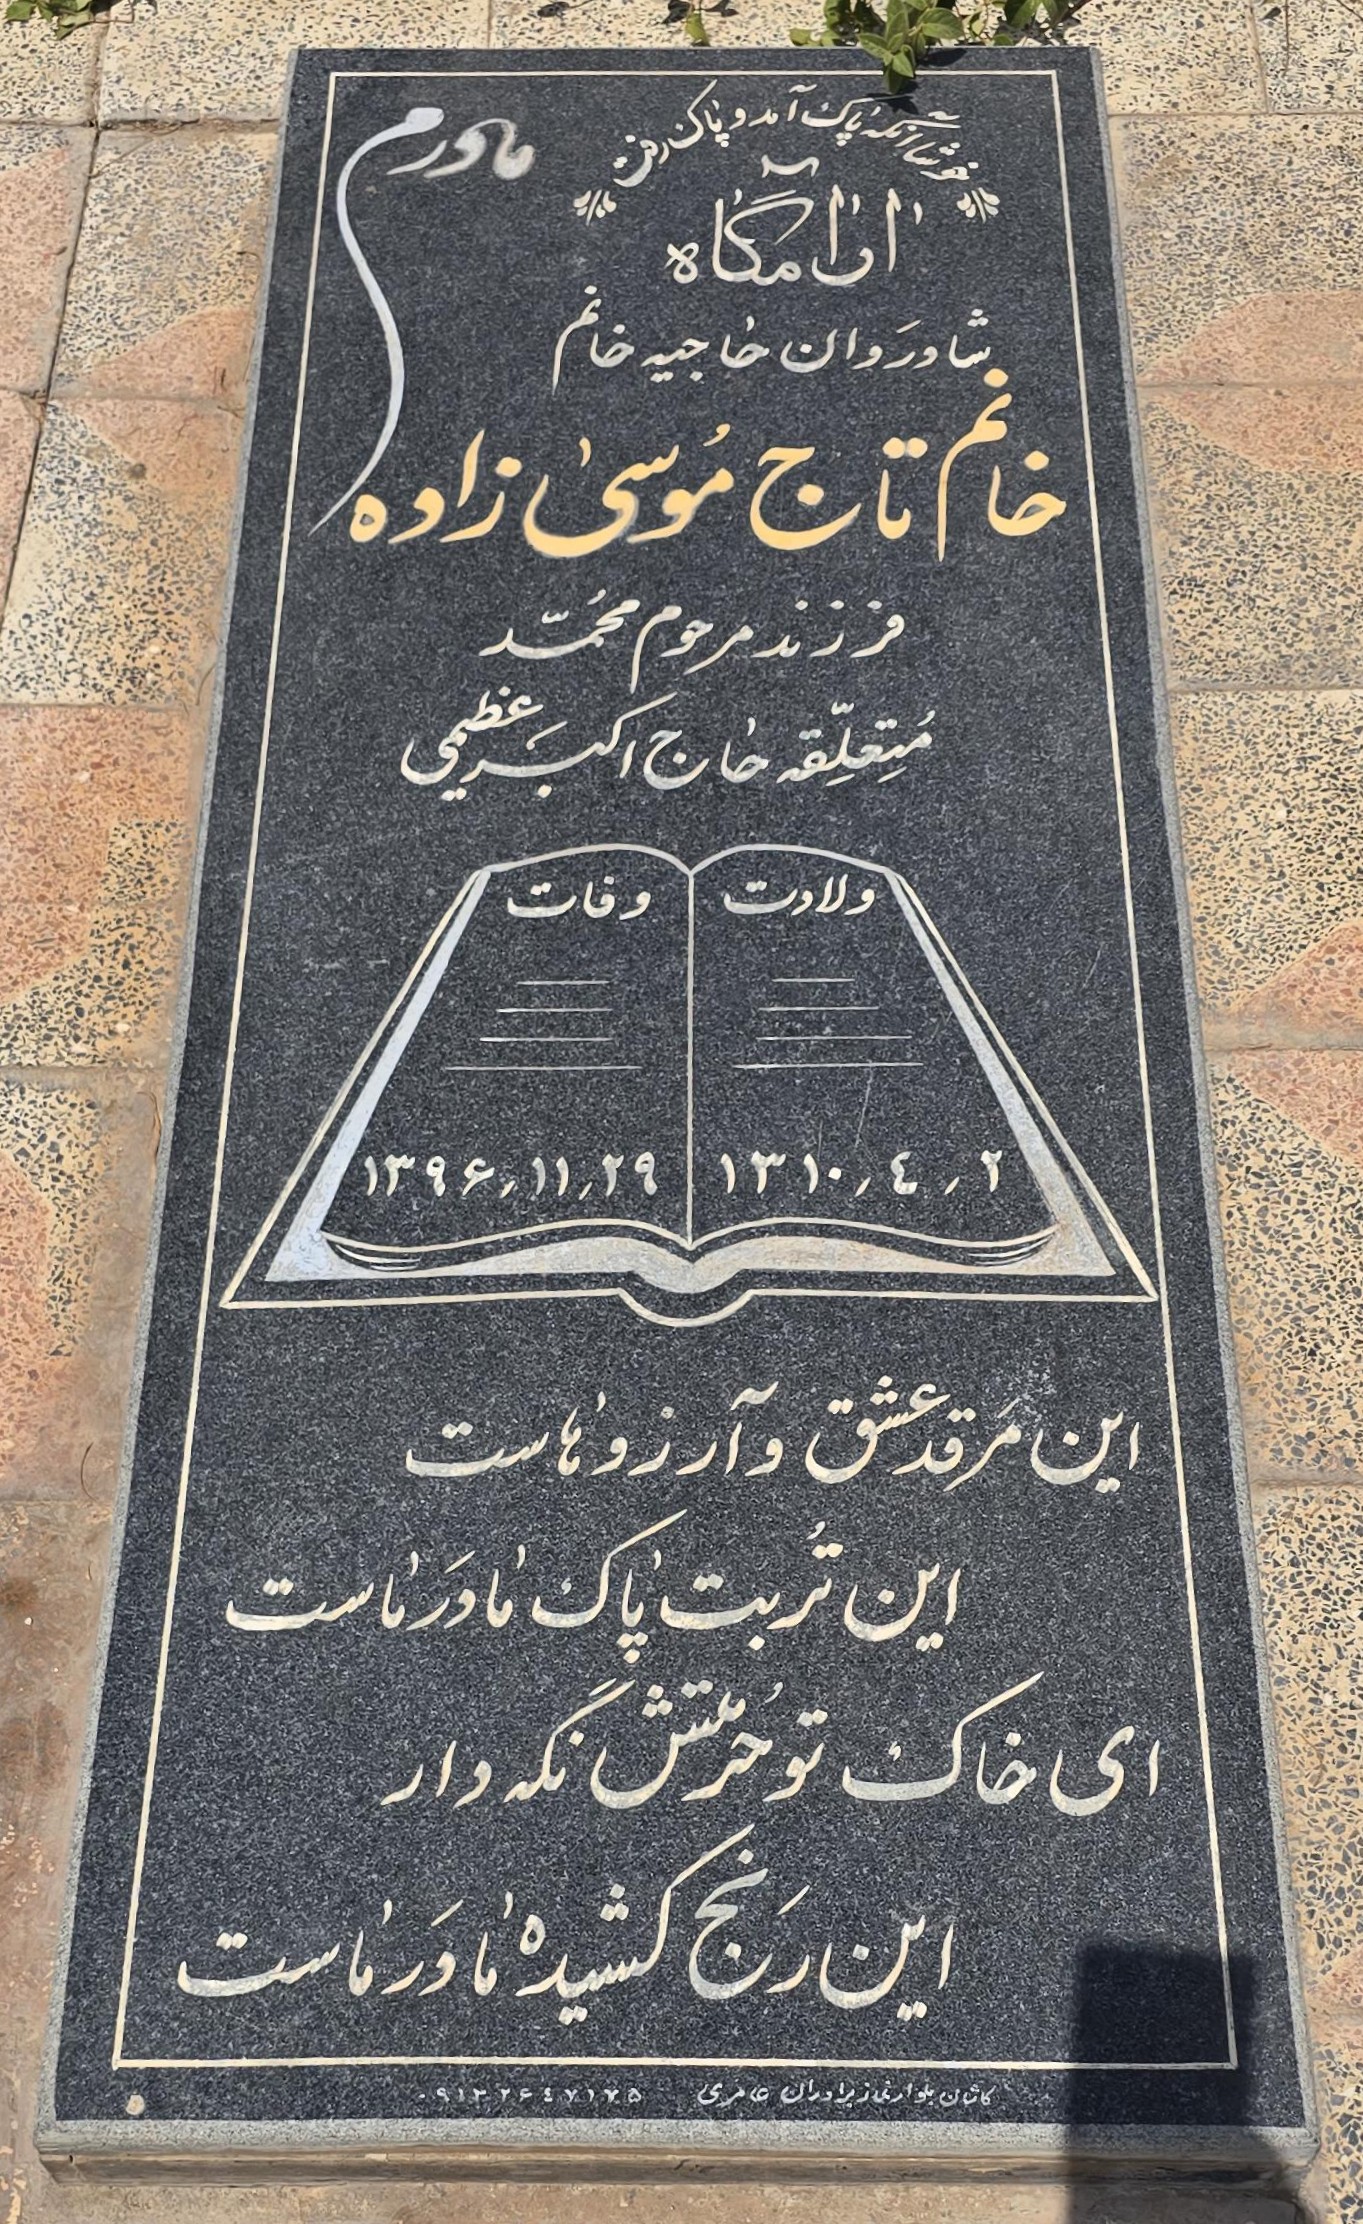 خوشا آنکه پاک آمد و پاک رفت
مادرم
آرامگاه
شادروان حاجیه خانم
خانم تاج موسی زاده
فرزند مرحوم محمّد
مُتِعلِّقه حاج اکبر عظیمی
ولادت
۱۳۱۰٫۴٫۲
وفات
۱۳۹۶٫۱۱٫۲۹
این مَرقد عشق و آرزوهاست
این تُربت پاک مادَر ماست
ای خاک تو حُرمتش نگه دار
این رَنج کشیده مادَر ماست
کاشان بلوار نماز برادران عامری ۰۹۱۳۲۶۴۷۱۷۵